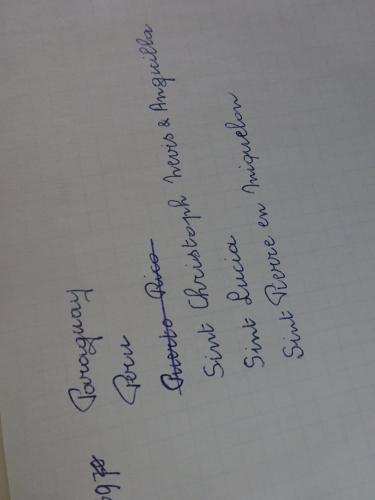 Paraguay
Peru
Puerto Rico
Sint Christoph Nevis & Anguilla
Sint Lucia
Sint Pierre en Miquelon